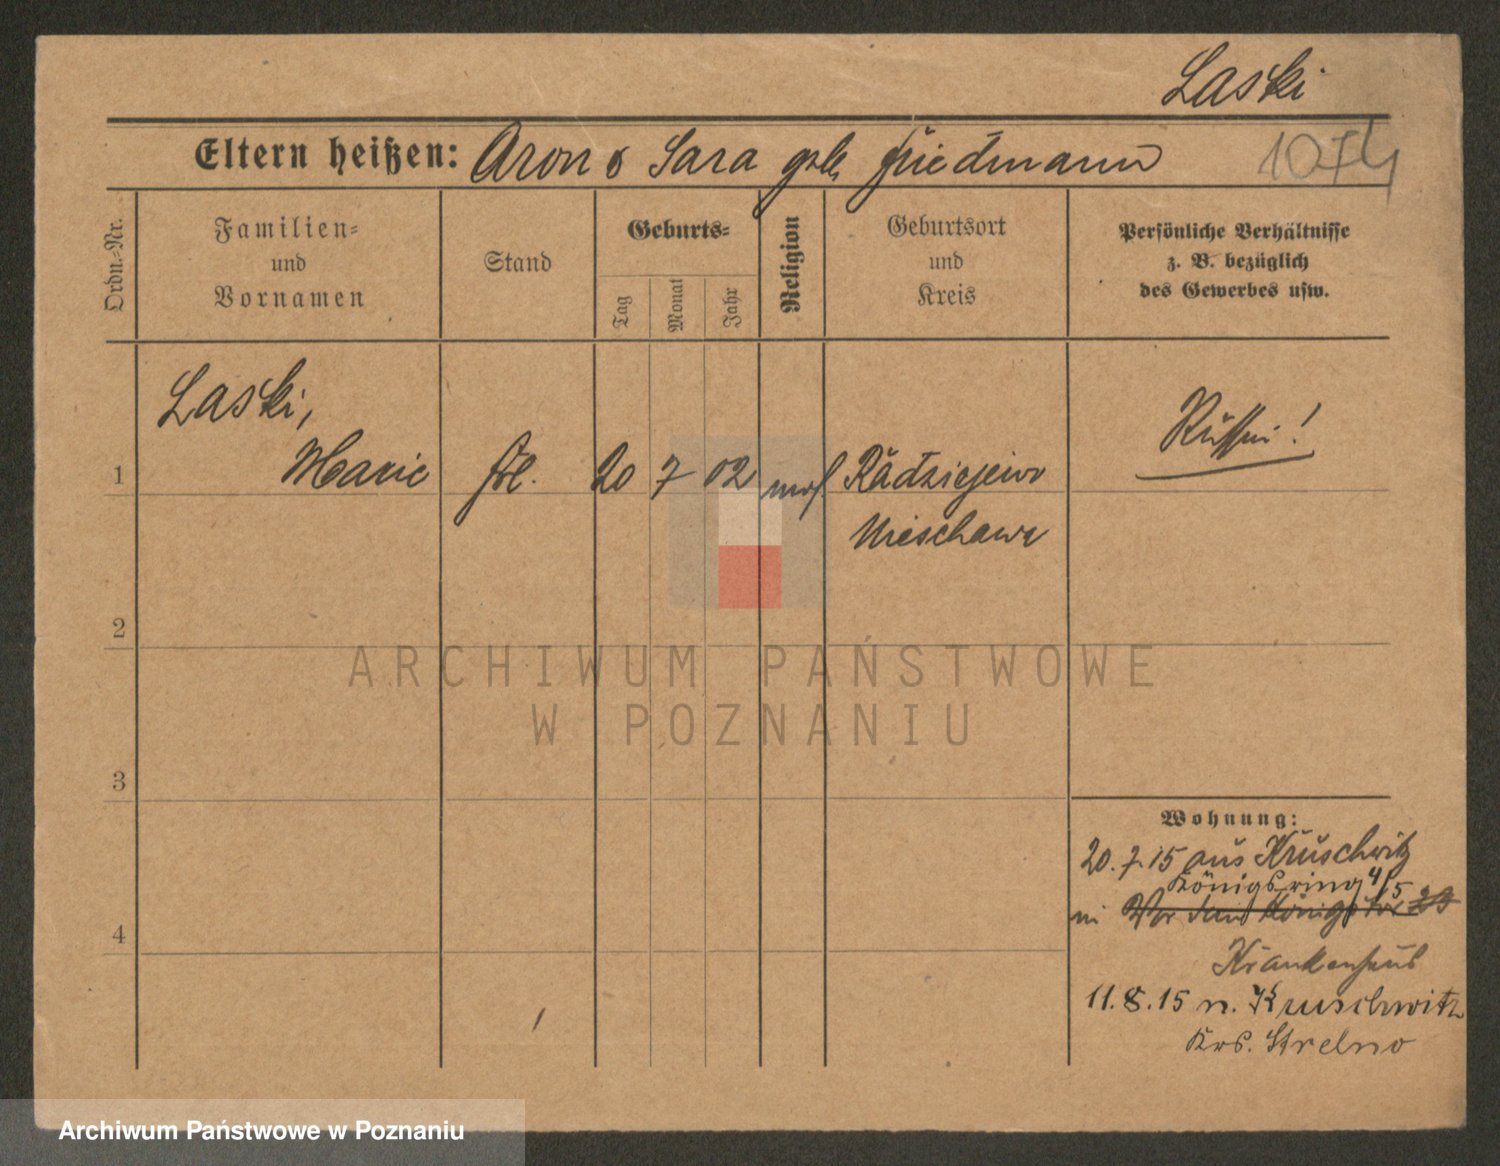 Laski
Eltern heißen: Aron & Sara geb. Friedmann
1074
Ordn.-Nr.
Familien-
und
Vornamen
Stand
Geburts-
Tag
Monat
Jahr
Religion
Geburtsort
und
Kreis
Persönliche Verhältnisse
z. B. bezüglich
des Gewerbes usw.
Laski,
1 Marie Frl. 20 7 02 mos. Radziejewo
Nieschawa
Russin!
2
3
4
Wohnung:
20.7.15 aus Kruschwitz
Königsring 4/5
in Vor dem Königstor
Krankenhaus
11.8.15 n. Kruschwitz
Krs. Strelno
ARCHIWUM PAŃSTWOWE
W POZNANIU
Archiwum Państwowe w Poznaniu